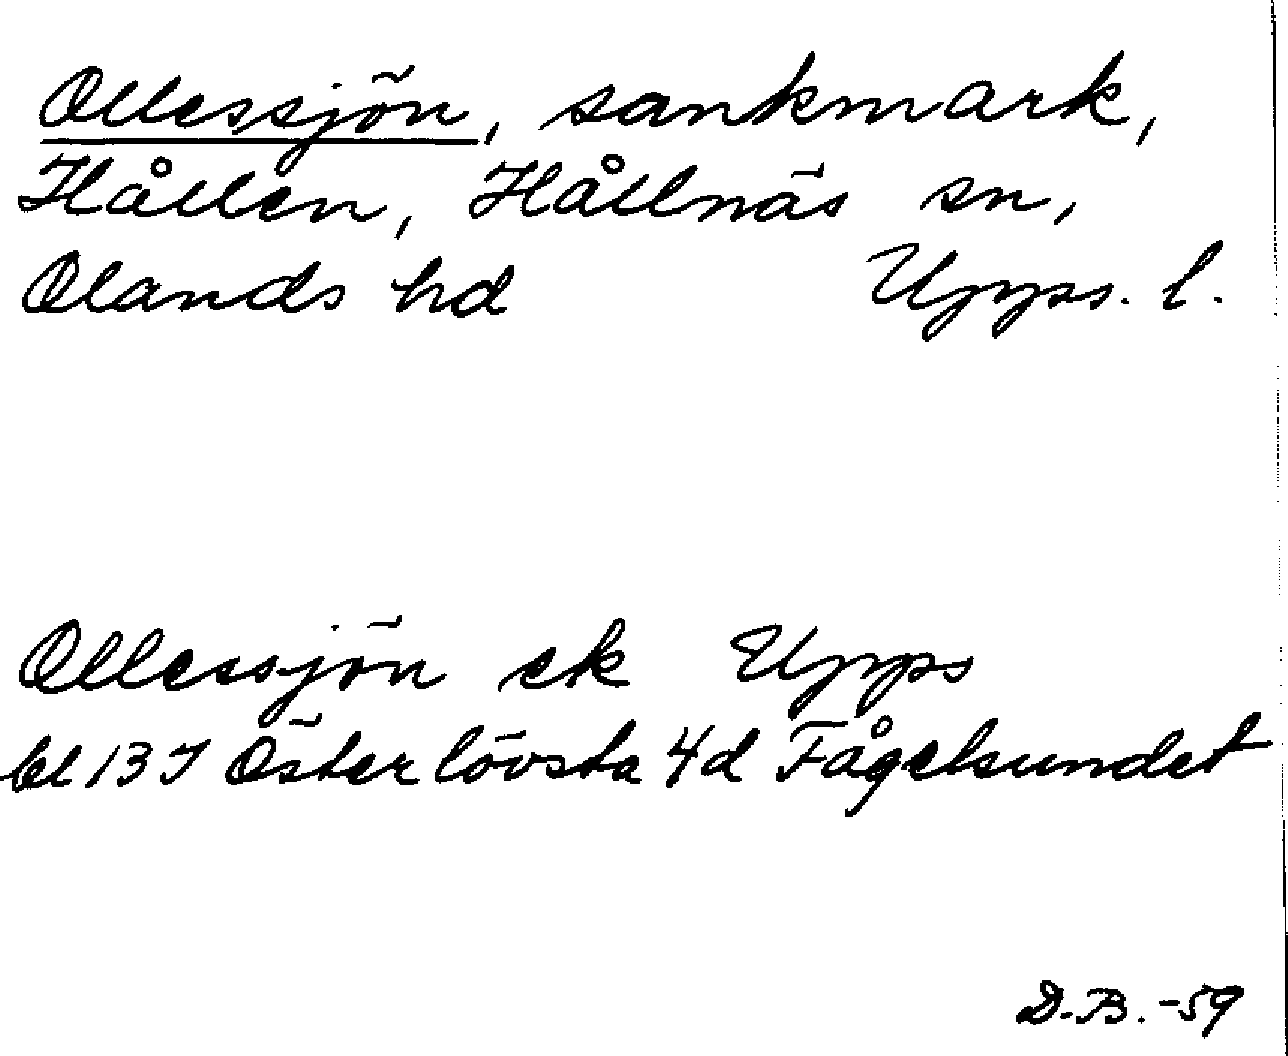 Ollessjön, sankmark,
Hållen, Hållnäs sn,
Olands hd Upps. l.
Ollessjön ek Upps
bl 13 I Österlövsta 4d Fågelsundet
D.B. -59